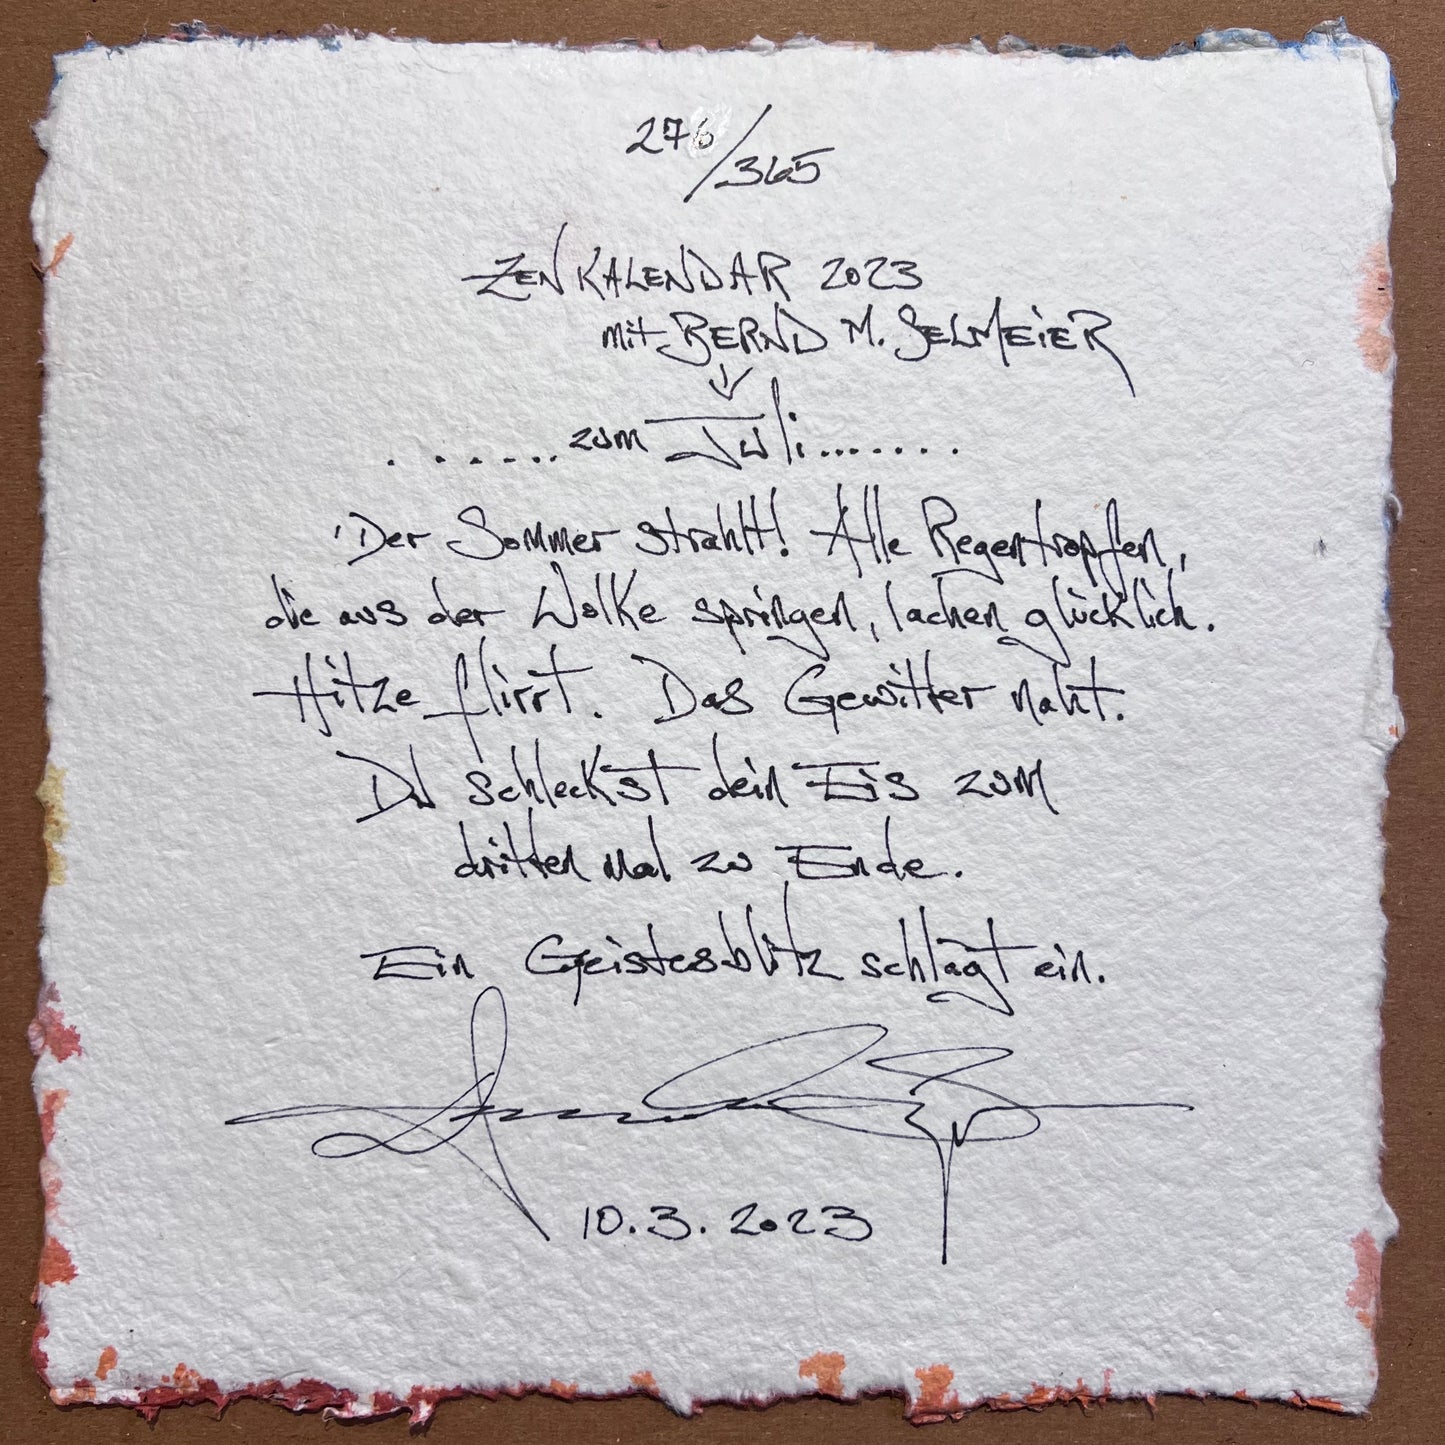 276/365
ZEN KALENDAR 2023
mit BERND M. SELMEIER
......zum Juli.......
'Der Sommer strahlt! Alle Regentropfen,
die aus der Wolke springen, lachen glücklich.
Hitze flirrt. Das Gewitter naht.
Du schleckst dein Eis zum
dritten mal zu Ende.
Ein Geistesblitz schlägt ein.
10.3.2023